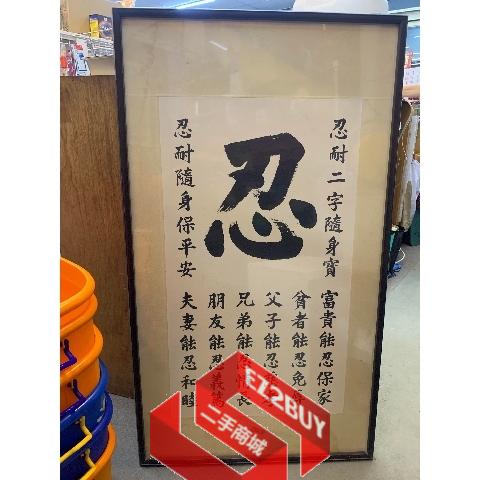 忍耐二字隨身寶
忍
忍耐隨身保平安
富貴能忍保家
貧者能忍免辱
父子能忍
兄弟能忍情長
朋友能忍義篤
夫妻能忍和睦
EZ2BUY
二手商城